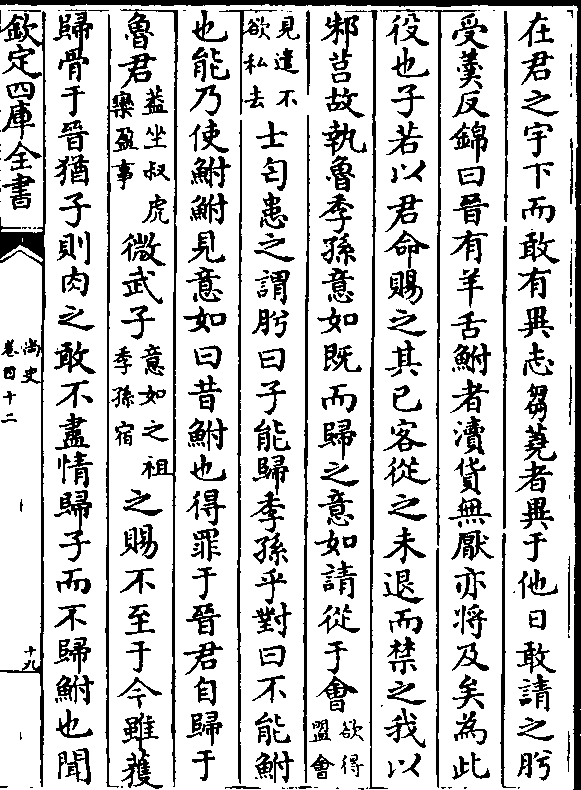 在君之宇下而敢有異志芻蕘者異于他日敢請之肸
受羮反錦曰晉有羊舌鮒者瀆貨無厭亦將及矣為此
役也子若以君命賜之其已客從之未退而禁之我以
邾莒故執魯季孫意如既而歸之意如請從于會欲得盟會
見遣不欲私去士匄患之謂肸曰子能歸季孫乎對曰不能鮒
也能乃使鮒鮒見意如曰昔鮒也得罪于晉君自歸于
魯君葢坐叔虎欒盈事微武子意如之祖季孫宿之賜不至于今雖獲
歸骨于晉猶子則肉之敢不盡情歸子而不歸鮒也聞
欽定四庫全書
尚史
卷四十二
十九